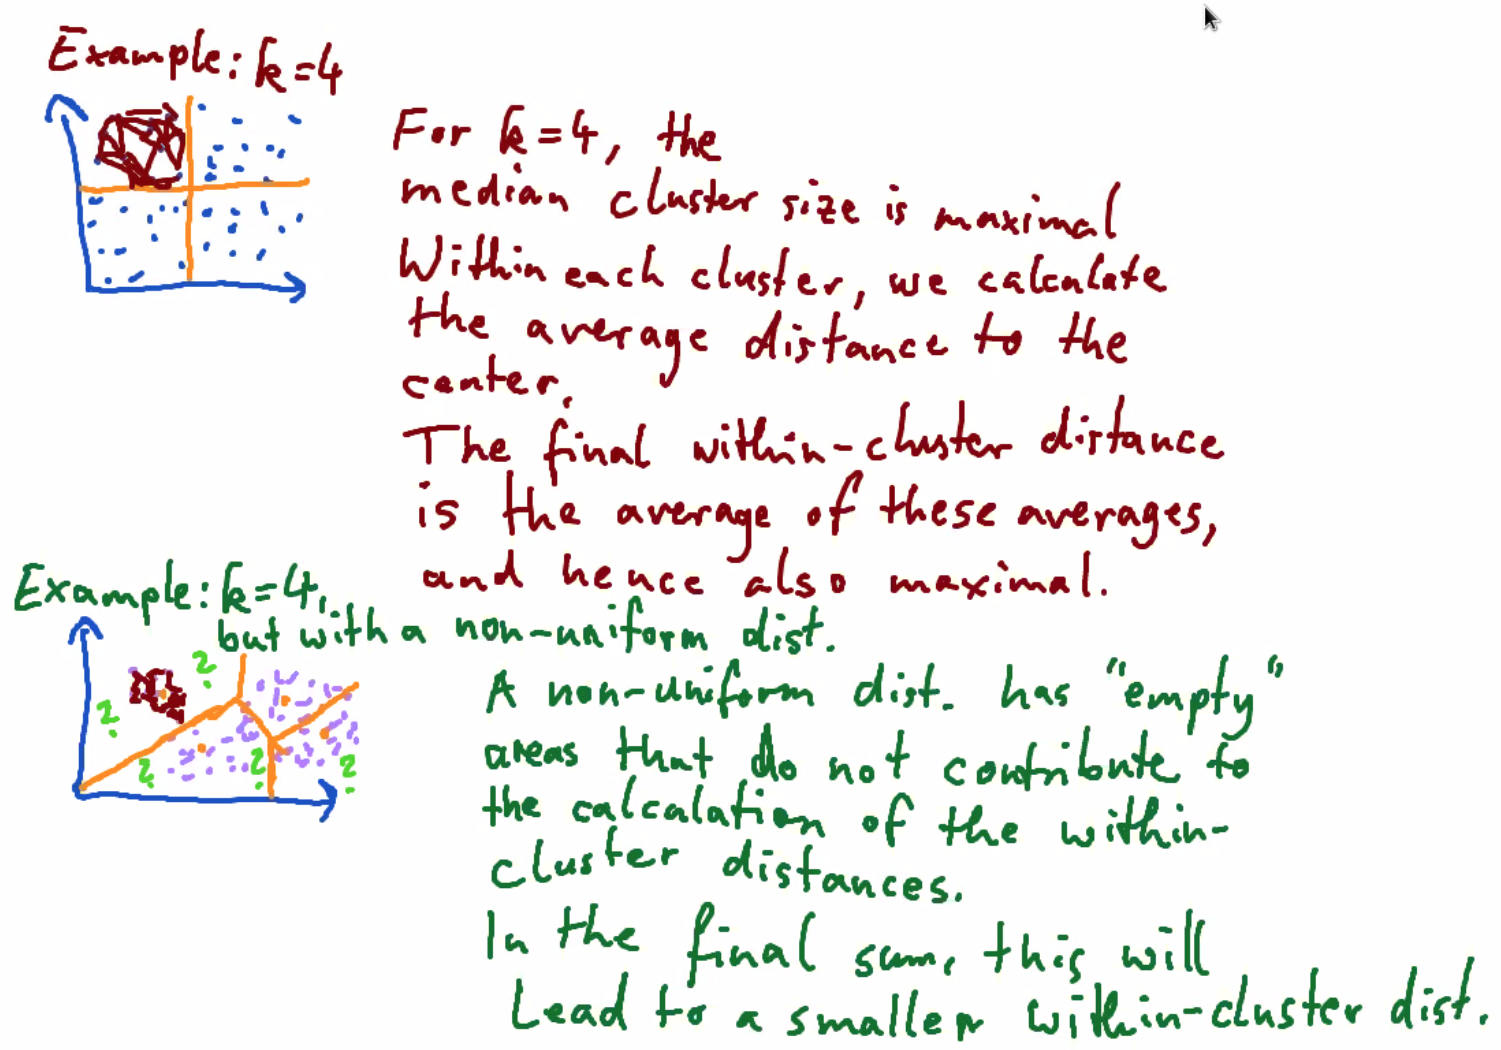 Example: k=4
For k=4, the
median cluster size is maximal
Within each cluster, we calculate
the average distance to the
center.
The final within-cluster distance
is the average of these averages,
and hence also maximal.
Example: k=4,
but with a non-uniform dist.
2
2
2
2
2
A non-uniform dist. has "empty"
areas that do not contribute to
the calcalation of the within-
cluster distances.
In the final sum, this will
Lead to a smaller within-cluster dist.